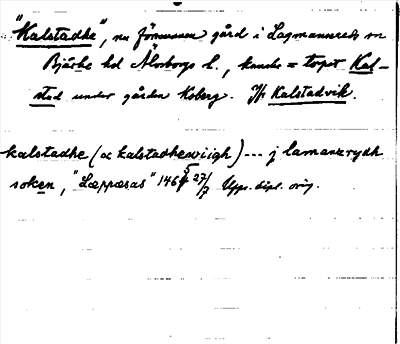 "Kalstadhe", nu försvunnen gård i Lagmansereds sn
Bjärke hd Älvsborgs l., kanske = torpet Kal-
stad under gården Koberg. Jfr Kalstadvik.
kalstadhe (ok kalstadhewiigh) --- j lamanzrydh
soken, "Læppæsas" 1465 27/7 Upps. dipl. orig.